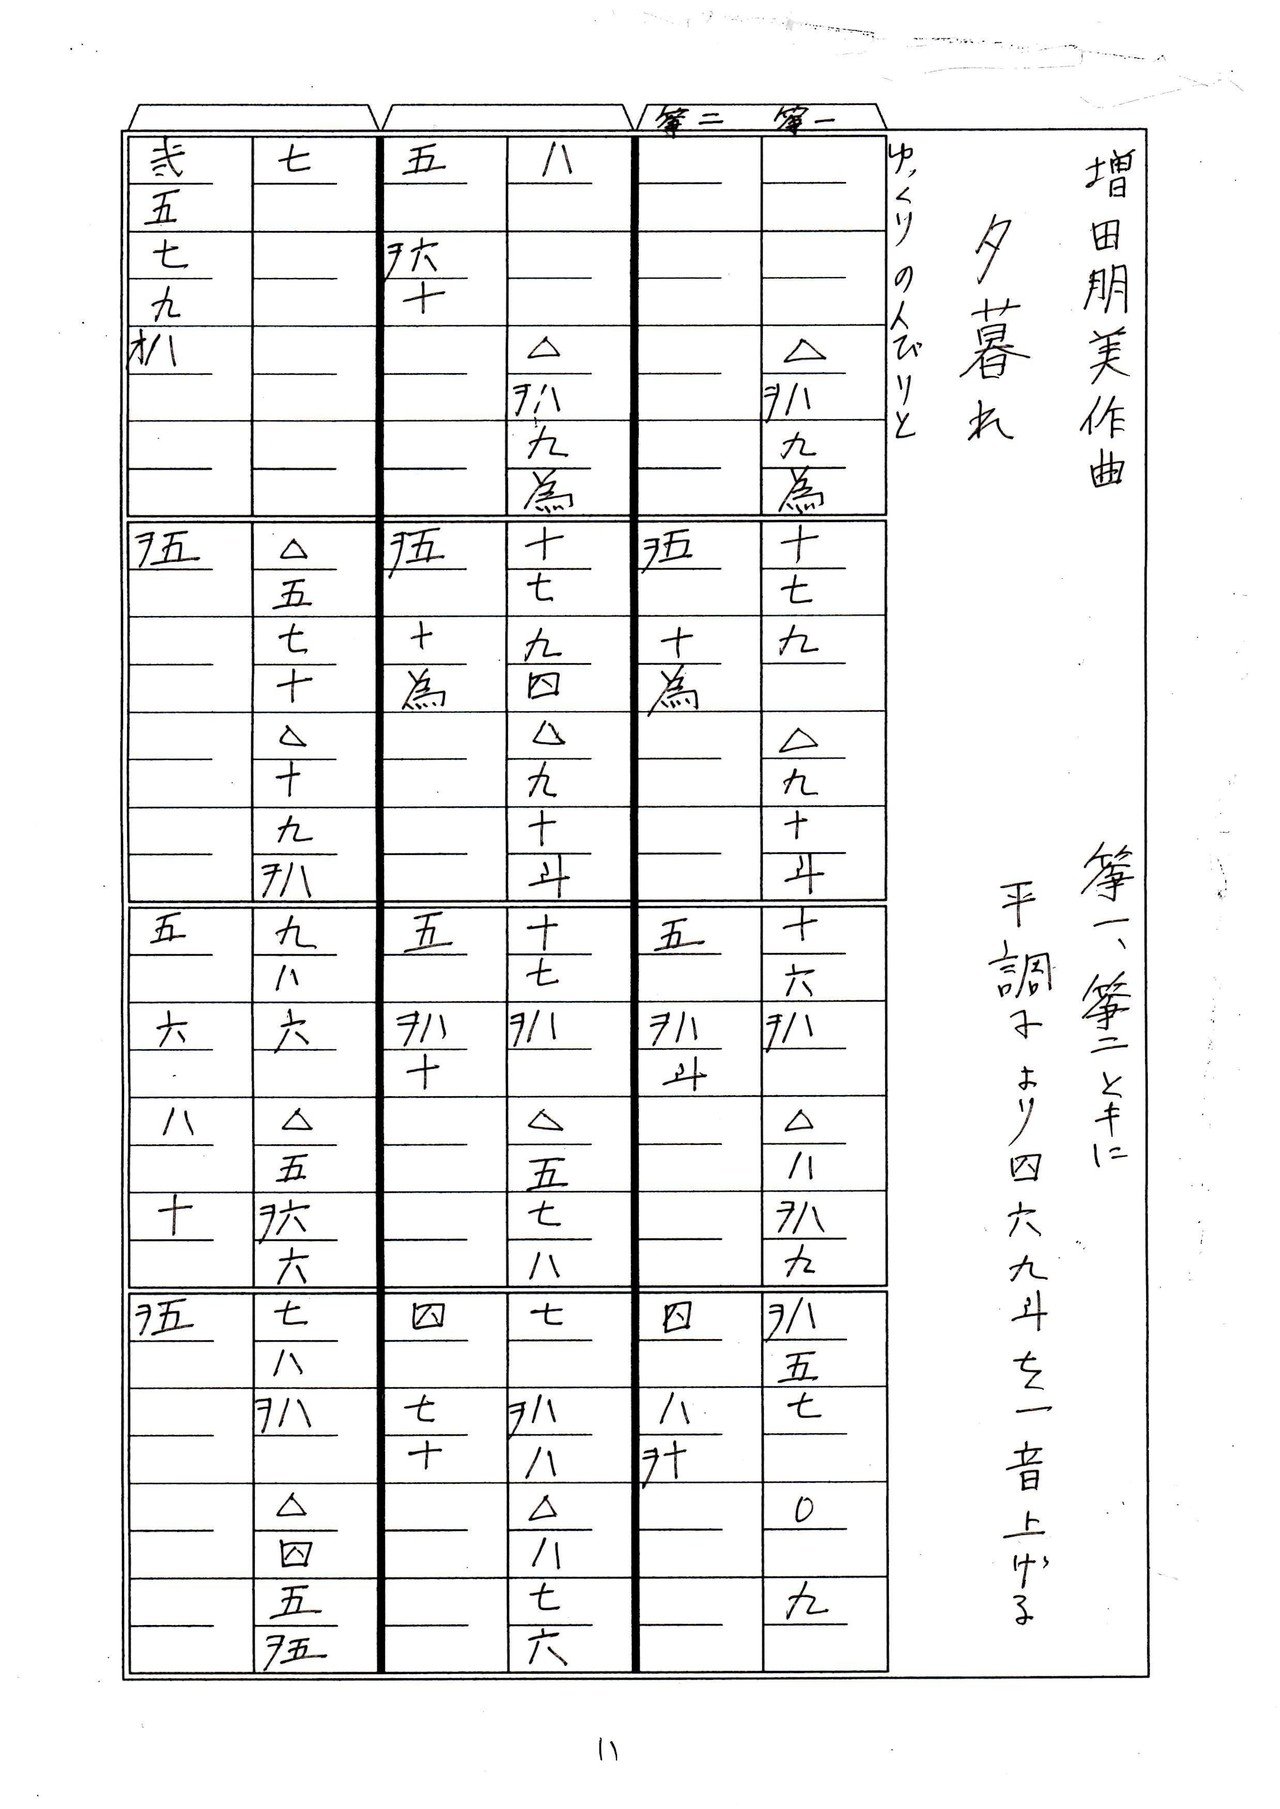 増田朋美作曲
箏一、箏二ともに
夕暮れ
平調子より四六九斗を一音上げる
ゆっくりのんびりと
箏一
△ ヲ八 九 為 十 七 九 △ 九 十 斗 十 六 ヲ八 △ 八 ヲ八 九 ヲ八 五 七 ○ 九
箏二
ヲ五 十 為 五 ヲ八 斗 四 八 ヲ十
八 △ ヲ八 九 為 十 七 九 四 △ 九 十 斗 十 七 ヲ八 △ 五 七 八 七 ヲ八 八 △ 八 七 六
五 ヲ六 十 ヲ五 十 為 五 ヲ八 十 四 七 十
七 △ 五 七 十 △ 十 九 ヲ八 九 八 六 △ 五 ヲ六 六 七 八 ヲ八 △ 四 五 ヲ五
弐 五 七 九 オ八 ヲ五 五 六 八 十 ヲ五
11